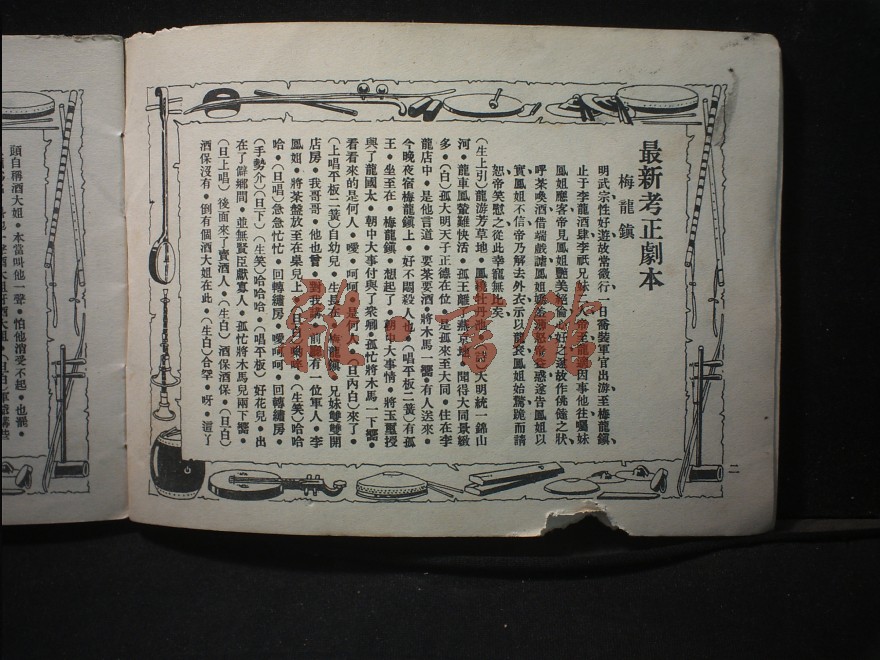 最新考正劇本
梅龍鎮
明武宗性好遊故常微行一日喬裝軍官出游至梅龍鎮
止于李龍酒肆李祇兄妹二人帝至龍適因事他往囑妹
鳳姐應客帝見鳳姐艷美絕倫
呼茶喚酒借端戲謔鳳姐
實鳳姐不信帝乃解去外衣示以龍袞鳳姐始驚跪而請
恕帝笑慰之從此幸龍無比矣
（生上引）龍游芳草地●鳳橈牡丹池●（詩）大明統一錦山
河●龍車鳳輦難快活●孤王離了燕京地●聞得大同景緻
多●（白）孤大明天子正德在位●是孤來至大同●住在李
龍店中●是他言道●要茶要酒●將木馬一嚮●有人送來●
今晚夜宿梅龍鎮上●好不悶殺人也●（唱平板二簧）有孤
王●坐至在●梅龍鎮●想起了●朝中大事情●將玉璽授
與了龍國太●朝中大事付與了衆卿●孤忙將木馬一下嚮●
看看來的是何人●噯●呵呵●是何人●（旦內白）來了●
（上唱平板二簧）自幼兒●生長在●梅龍鎮●兄妹雙雙開
店房●我哥哥●他也曾●對我講●前廳有一位軍人●李
鳳姐●將茶盤放至在桌兒上●（旦白）喲咳●（生笑）哈哈
哈●（旦唱）急急忙忙●回轉繡房●噯呵呵●回轉繡房●
（手勢介）（旦下）（生笑）哈哈哈●（唱平板）好花兒●出
在了僻鄉間●並無賢臣獻寡人●孤忙將木馬兒兩下嚮●
（旦上唱）後面來了賣酒人●（生白）酒保酒保●（旦白）
酒保沒有●倒有個酒大姐在此●（生白）合罕●呀●這丫
二
頭自稱酒大姐●本當叫他一聲●怕他消受不起●也罷●
雅·言館